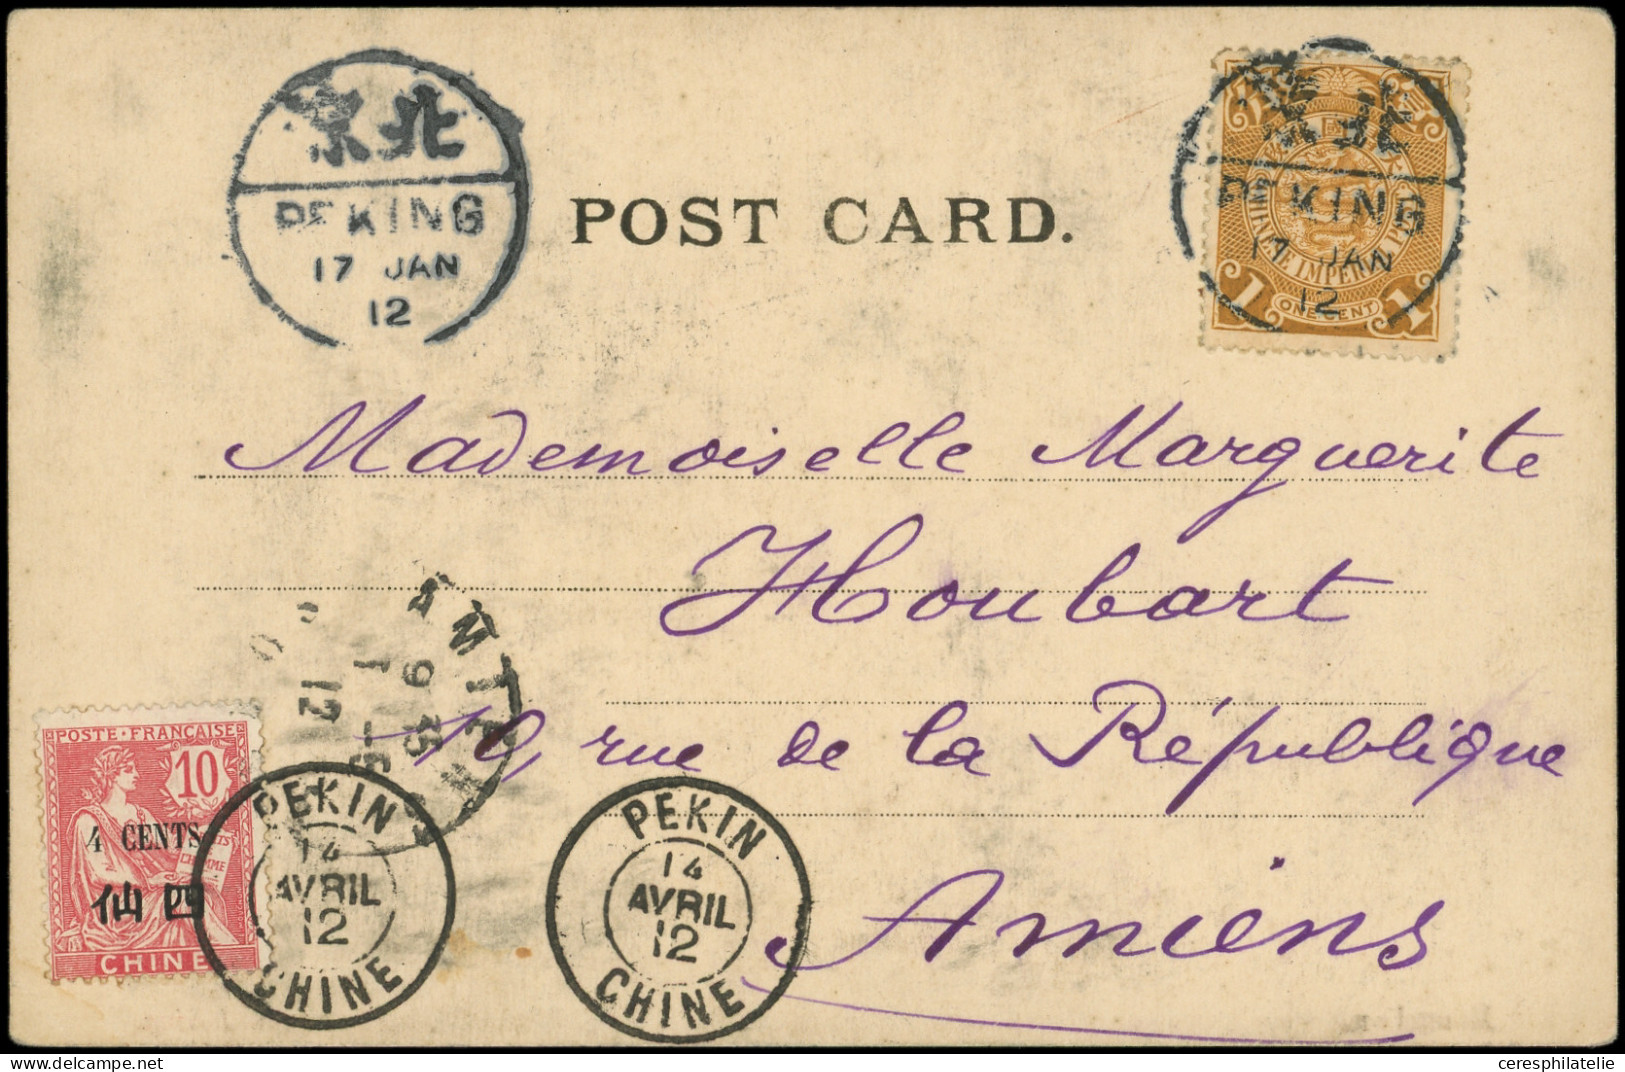 京北
PEKING
17 JAN
12
POST CARD.
京北
PEKING
17 JAN
12
CHINESE IMPERIAL
1 ONE CENT 1
Mademoiselle Marguerite
Houbart
19, rue de la République
Amiens
AMIENS
9 35
12
POSTE FRANÇAISE
10
4 CENTS
仙四
CHINE
PEKIN
14
AVRIL
12
CHINE
PEKIN
14
AVRIL
12
CHINE
ceresphilatelie